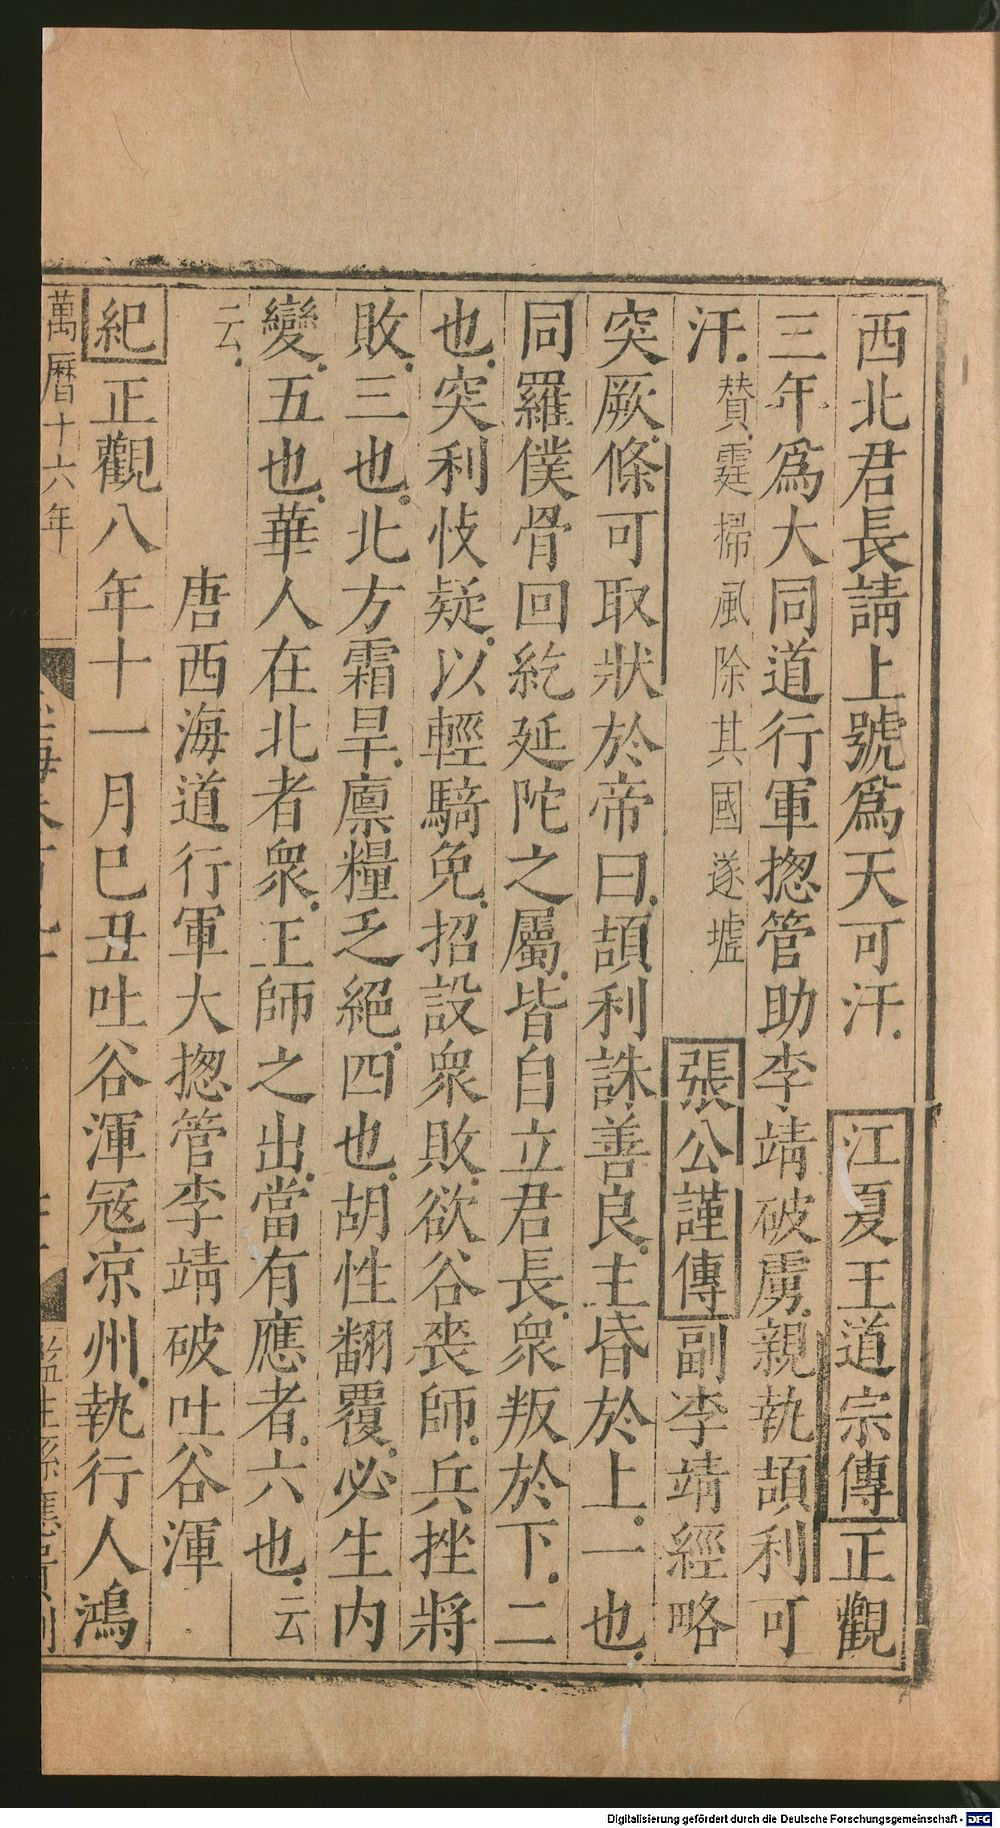 西北君長請上號爲天可汗江夏王道宗傳正觀
三年爲大同道行軍揔管助李靖破虜親執頡利可
汗贊霆掃風除其國遂墟張公謹傳副李靖經略
突厥條可取狀於帝曰頡利誅善良主昏於上一也
同羅僕骨回紇延陀之屬皆自立君長衆叛於下二
也突利忮疑以輕騎免招設衆敗欲谷喪師兵挫將
敗三也北方霜旱廪糧乏絕四也胡性翻覆必生内
變五也華人在北者衆王師之出當有應者六也云
云
唐西海道行軍大揔管李靖破吐谷渾
紀正觀八年十一月巳丑吐谷渾寇凉州執行人鴻
萬曆十六年
監生孫應
Digitalisierung gefördert durch die Deutsche Forschungsgemeinschaft - DFG